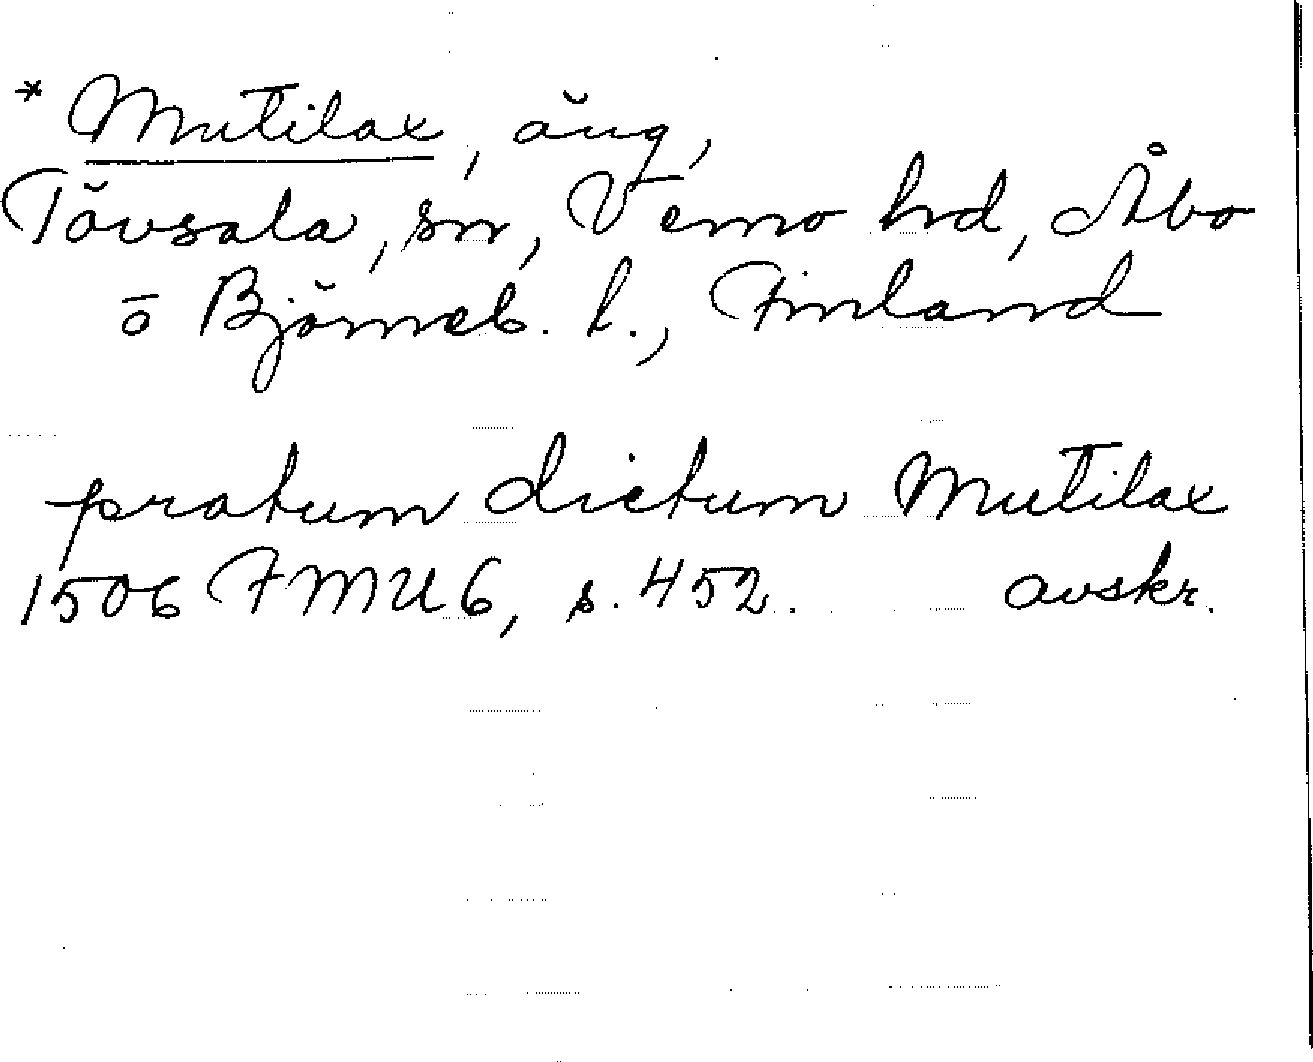 * Mutilax, äng,
Tövsala, sn, Vemo hd, Åbo
o Björneb. l., Finland
pratum dictum Mutilax
1506 FMU 6, s. 452. avskr.